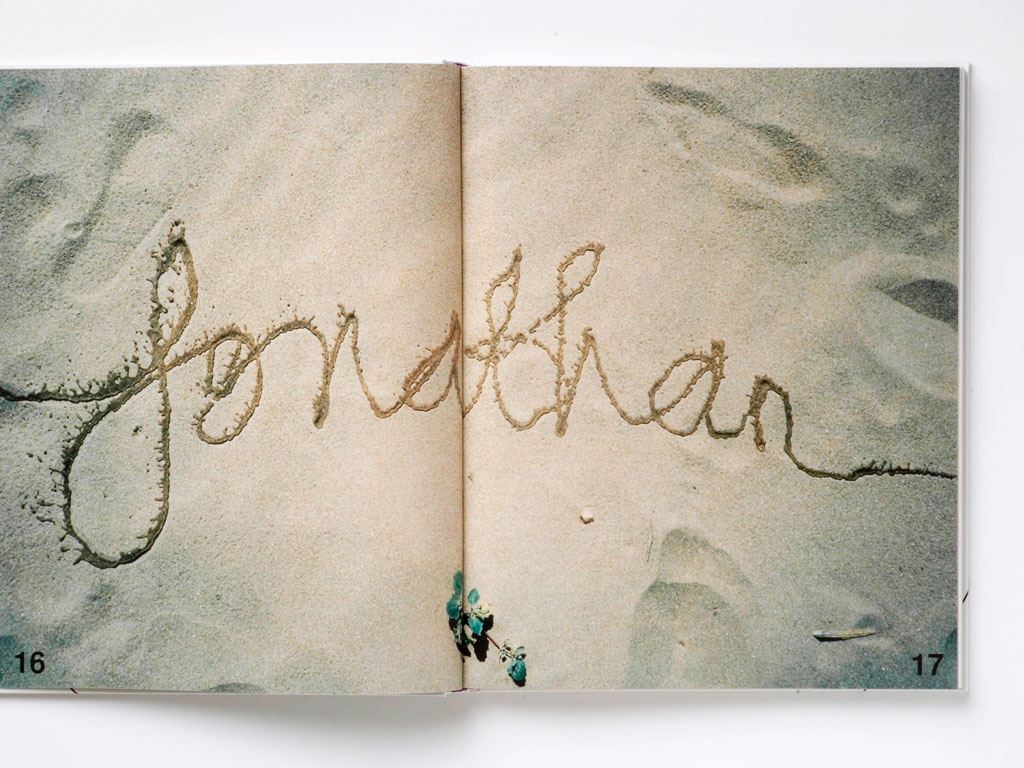 Jonathan
16
17